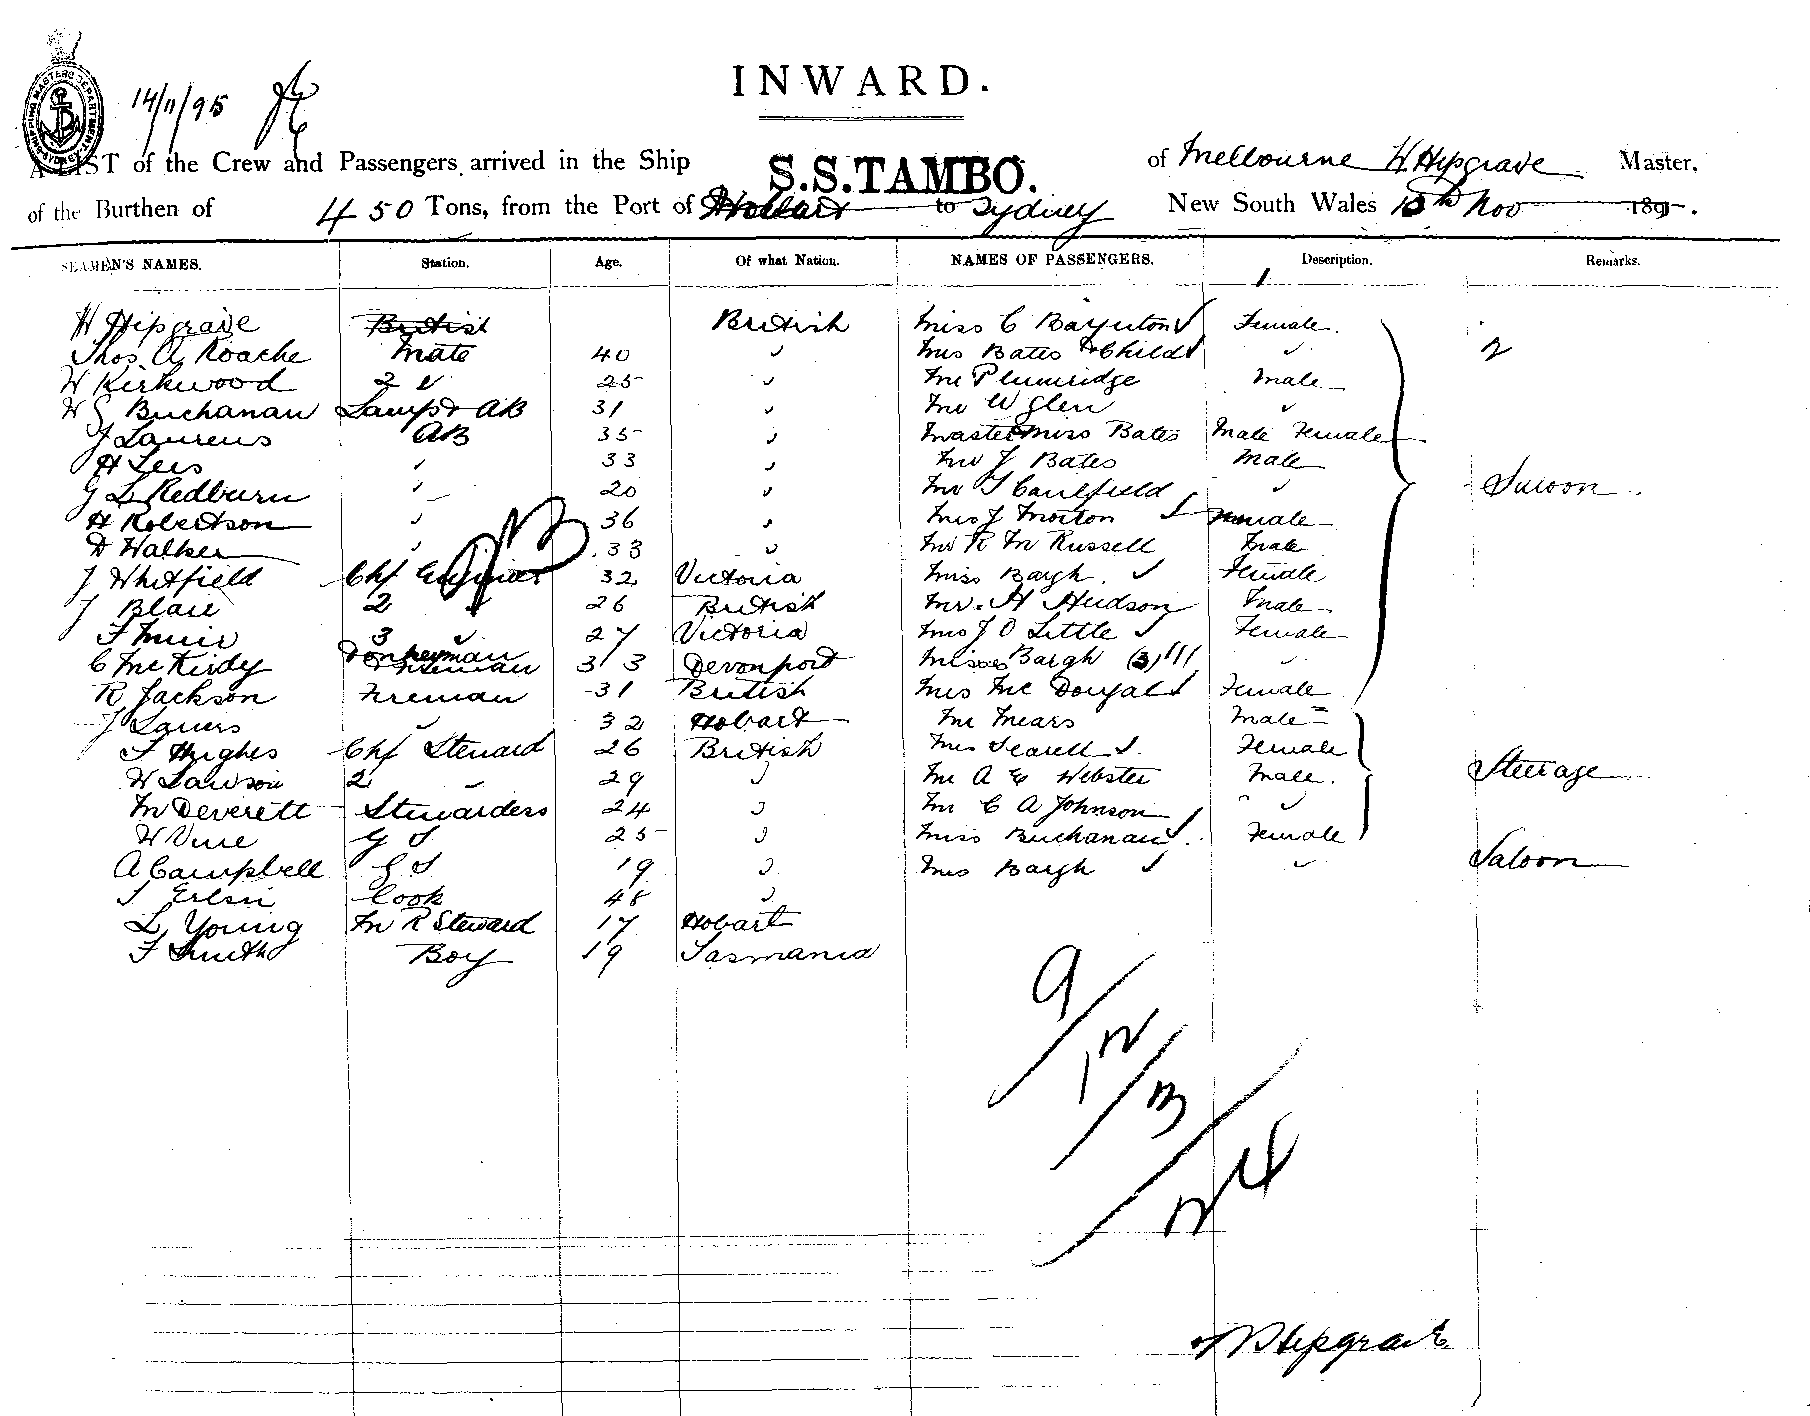 INWARD.
14/11/95
SHIPPING MASTERS DEPARTMENT SYDNEY
A LIST of the Crew and Passengers arrived in the Ship S.S.TAMBO. of Melbourne H Hipgrave Master,
of the Burthen of 450 Tons, from the Port of Hobart to Sydney New South Wales 13th Nov 1895.
SEAMEN'S NAMES. Station. Age. Of what Nation. NAMES OF PASSENGERS. Description. Remarks.
1
H Hipgrave British British Miss C Baynton Female.
Thos A Roache Mate 40 " Mrs Bates & Child " 2
W Kirkwood 2 " 25 " Mr Plumridge Male
W G Buchanan Lamps & AB 31 " Mr W Glen "
J Laurens AB 35 " Master Miss Bates Male Female
H Lees " 33 " Mr J Bates Male
G L Redburn " 20 " Mr T Caulfield " Saloon.
H Robertson " 36 " Mrs J Morton Female
D Walker " 33 " Mr R M Russell Male
J Whitfield Chf Engineer 32 Victoria Miss Bargh. Female
J Blair 2 " 26 British Mr. H Hudson Male
F Muir 3 " 27 Victoria Mrs J O Little Female
C McKirdy Donkeyman & Fireman 33 Devonport Misses Bargh (3) "
R Jackson Fireman 31 British Mrs McDougal Female
J " 32 Hobart Mr Mears Male
F Hughes Chf Steward 26 British Mrs Searell Female
W Lawson 2 " 29 " Mr A E Webster Male. Steerage
M Deverett Stewardess 24 " Mr C A Johnson "
W Vine G S 25 " Miss Buchanan Female
A Campbell G S 19 " Mrs Bargh " Saloon
Cook 48 "
L Young M R Steward 17 Hobart
F Smith Boy 19 Tasmania
9/12/13/24
H Hipgrave